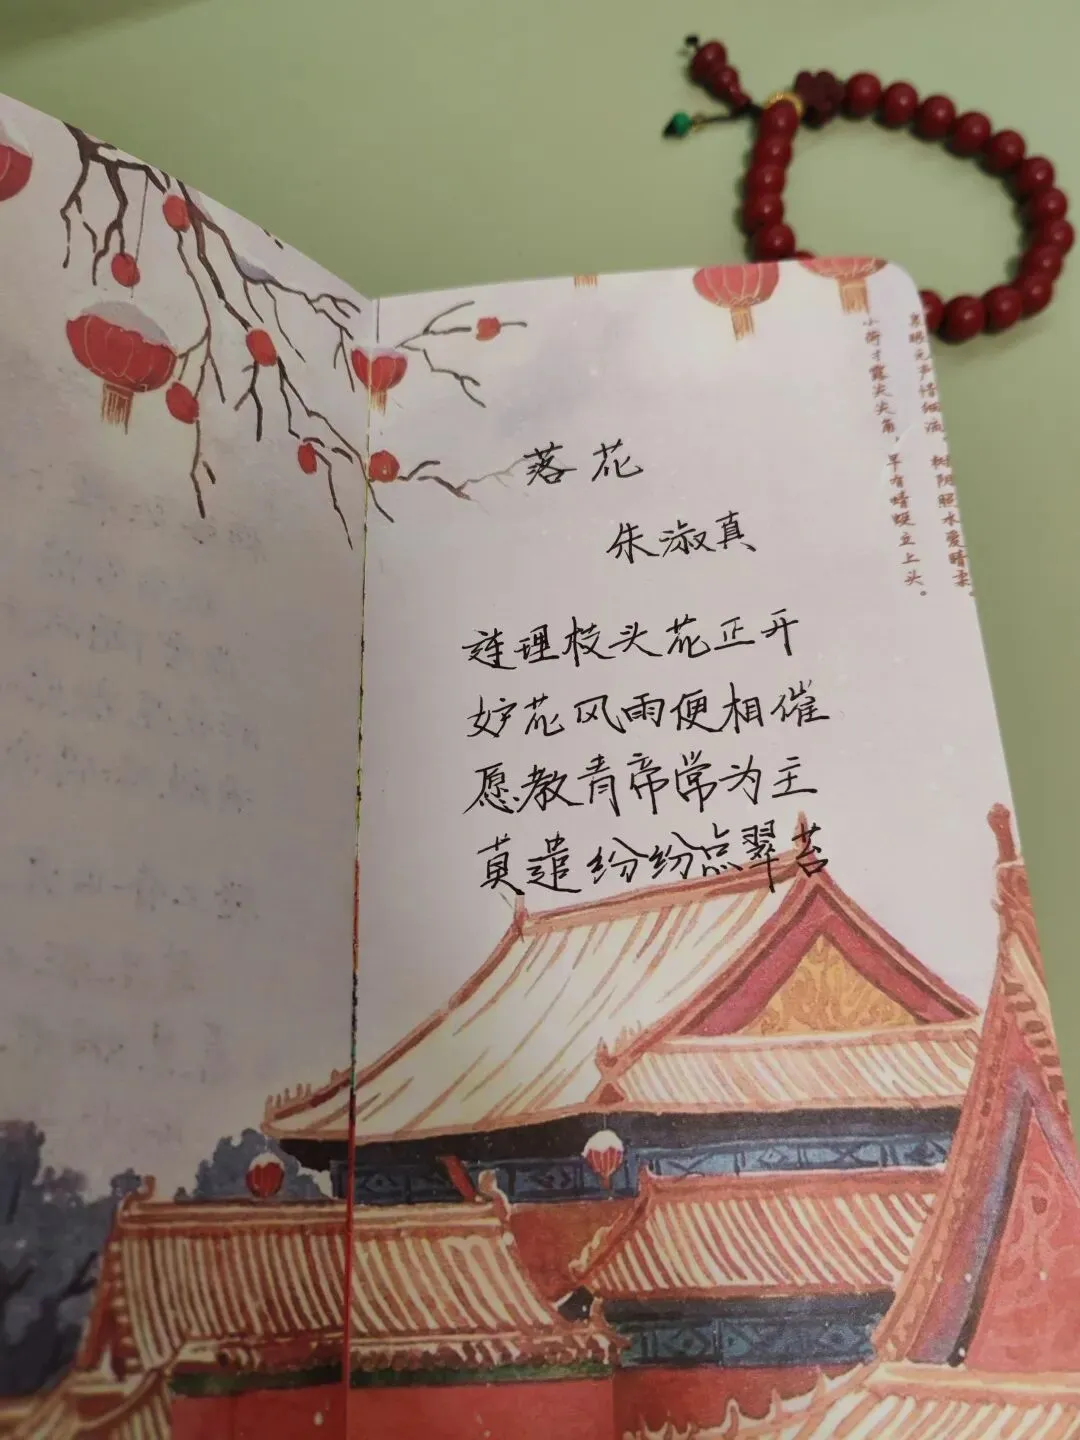 落花
朱淑真
连理枝头花正开
妒花风雨便相催
愿教青帝常为主
莫遣纷纷点翠苔
泉眼无声惜细流，树阴照水爱晴柔。
小荷才露尖尖角，早有蜻蜓立上头。